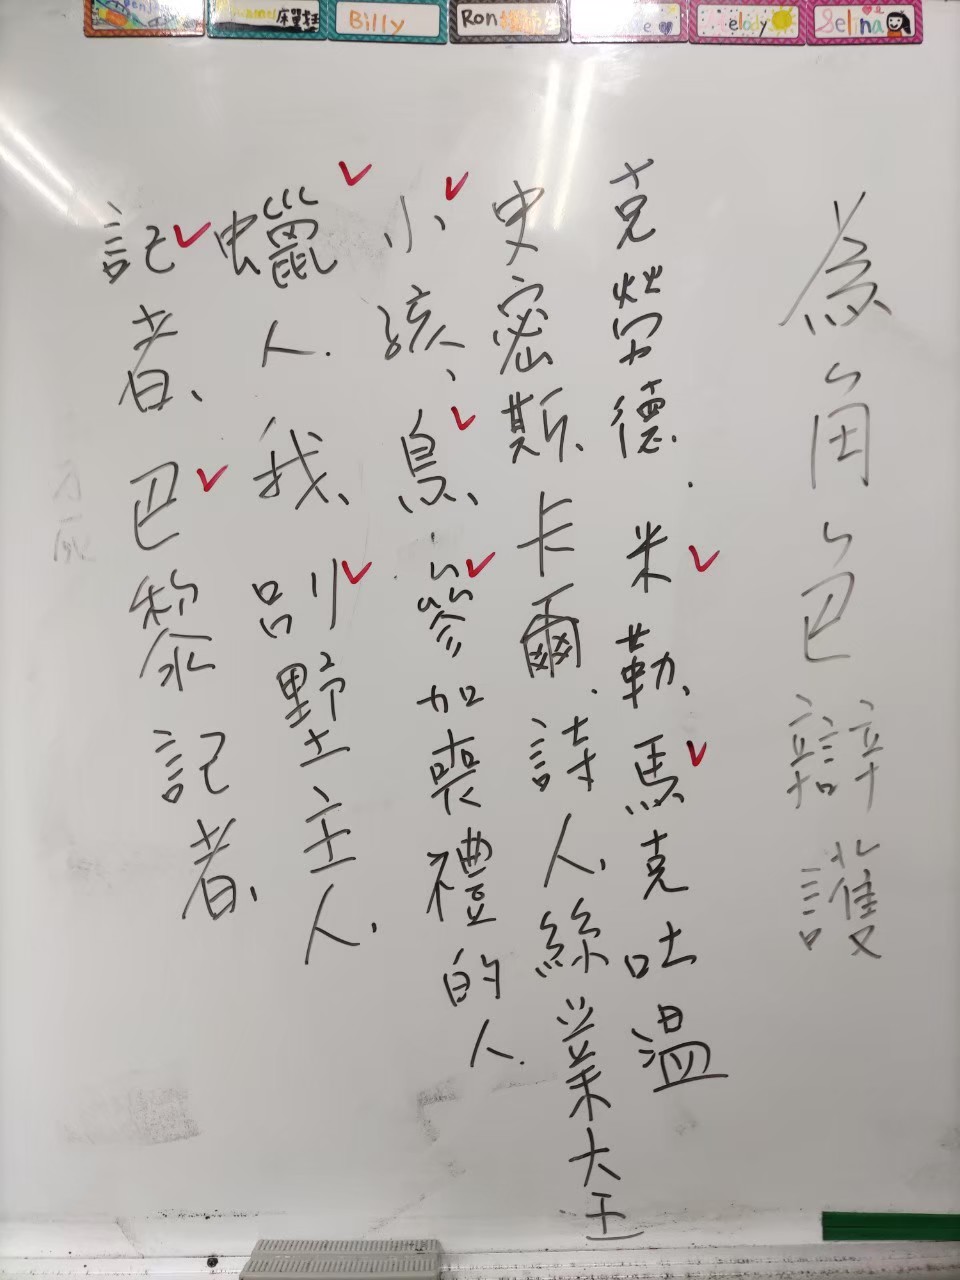 Billy
Ron
Melody
Selina
為角色辯護
克勞德.米勒、馬克吐溫
史密斯、卡爾.詩人、絲業大王
小孩、鳥、參加喪禮的人.
蠟人.我、別墅主人.
記者、巴黎記者、